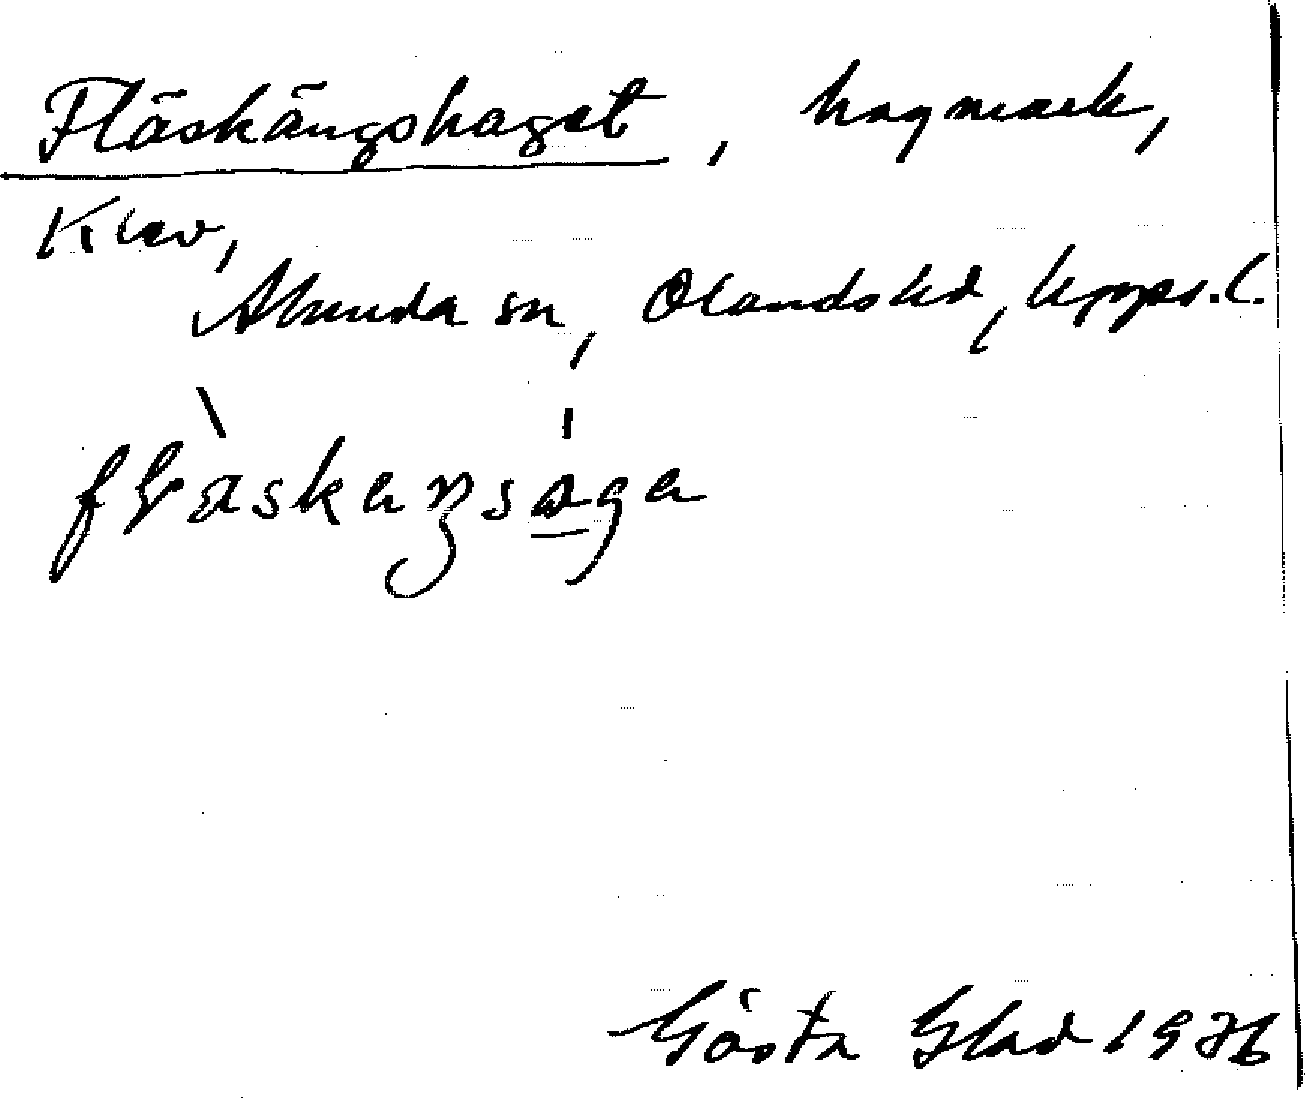 Fläskängshaget, hagmark,
Klev,
Alunda sn, Olands hd, Upps. l.
Gösta Glad 1976